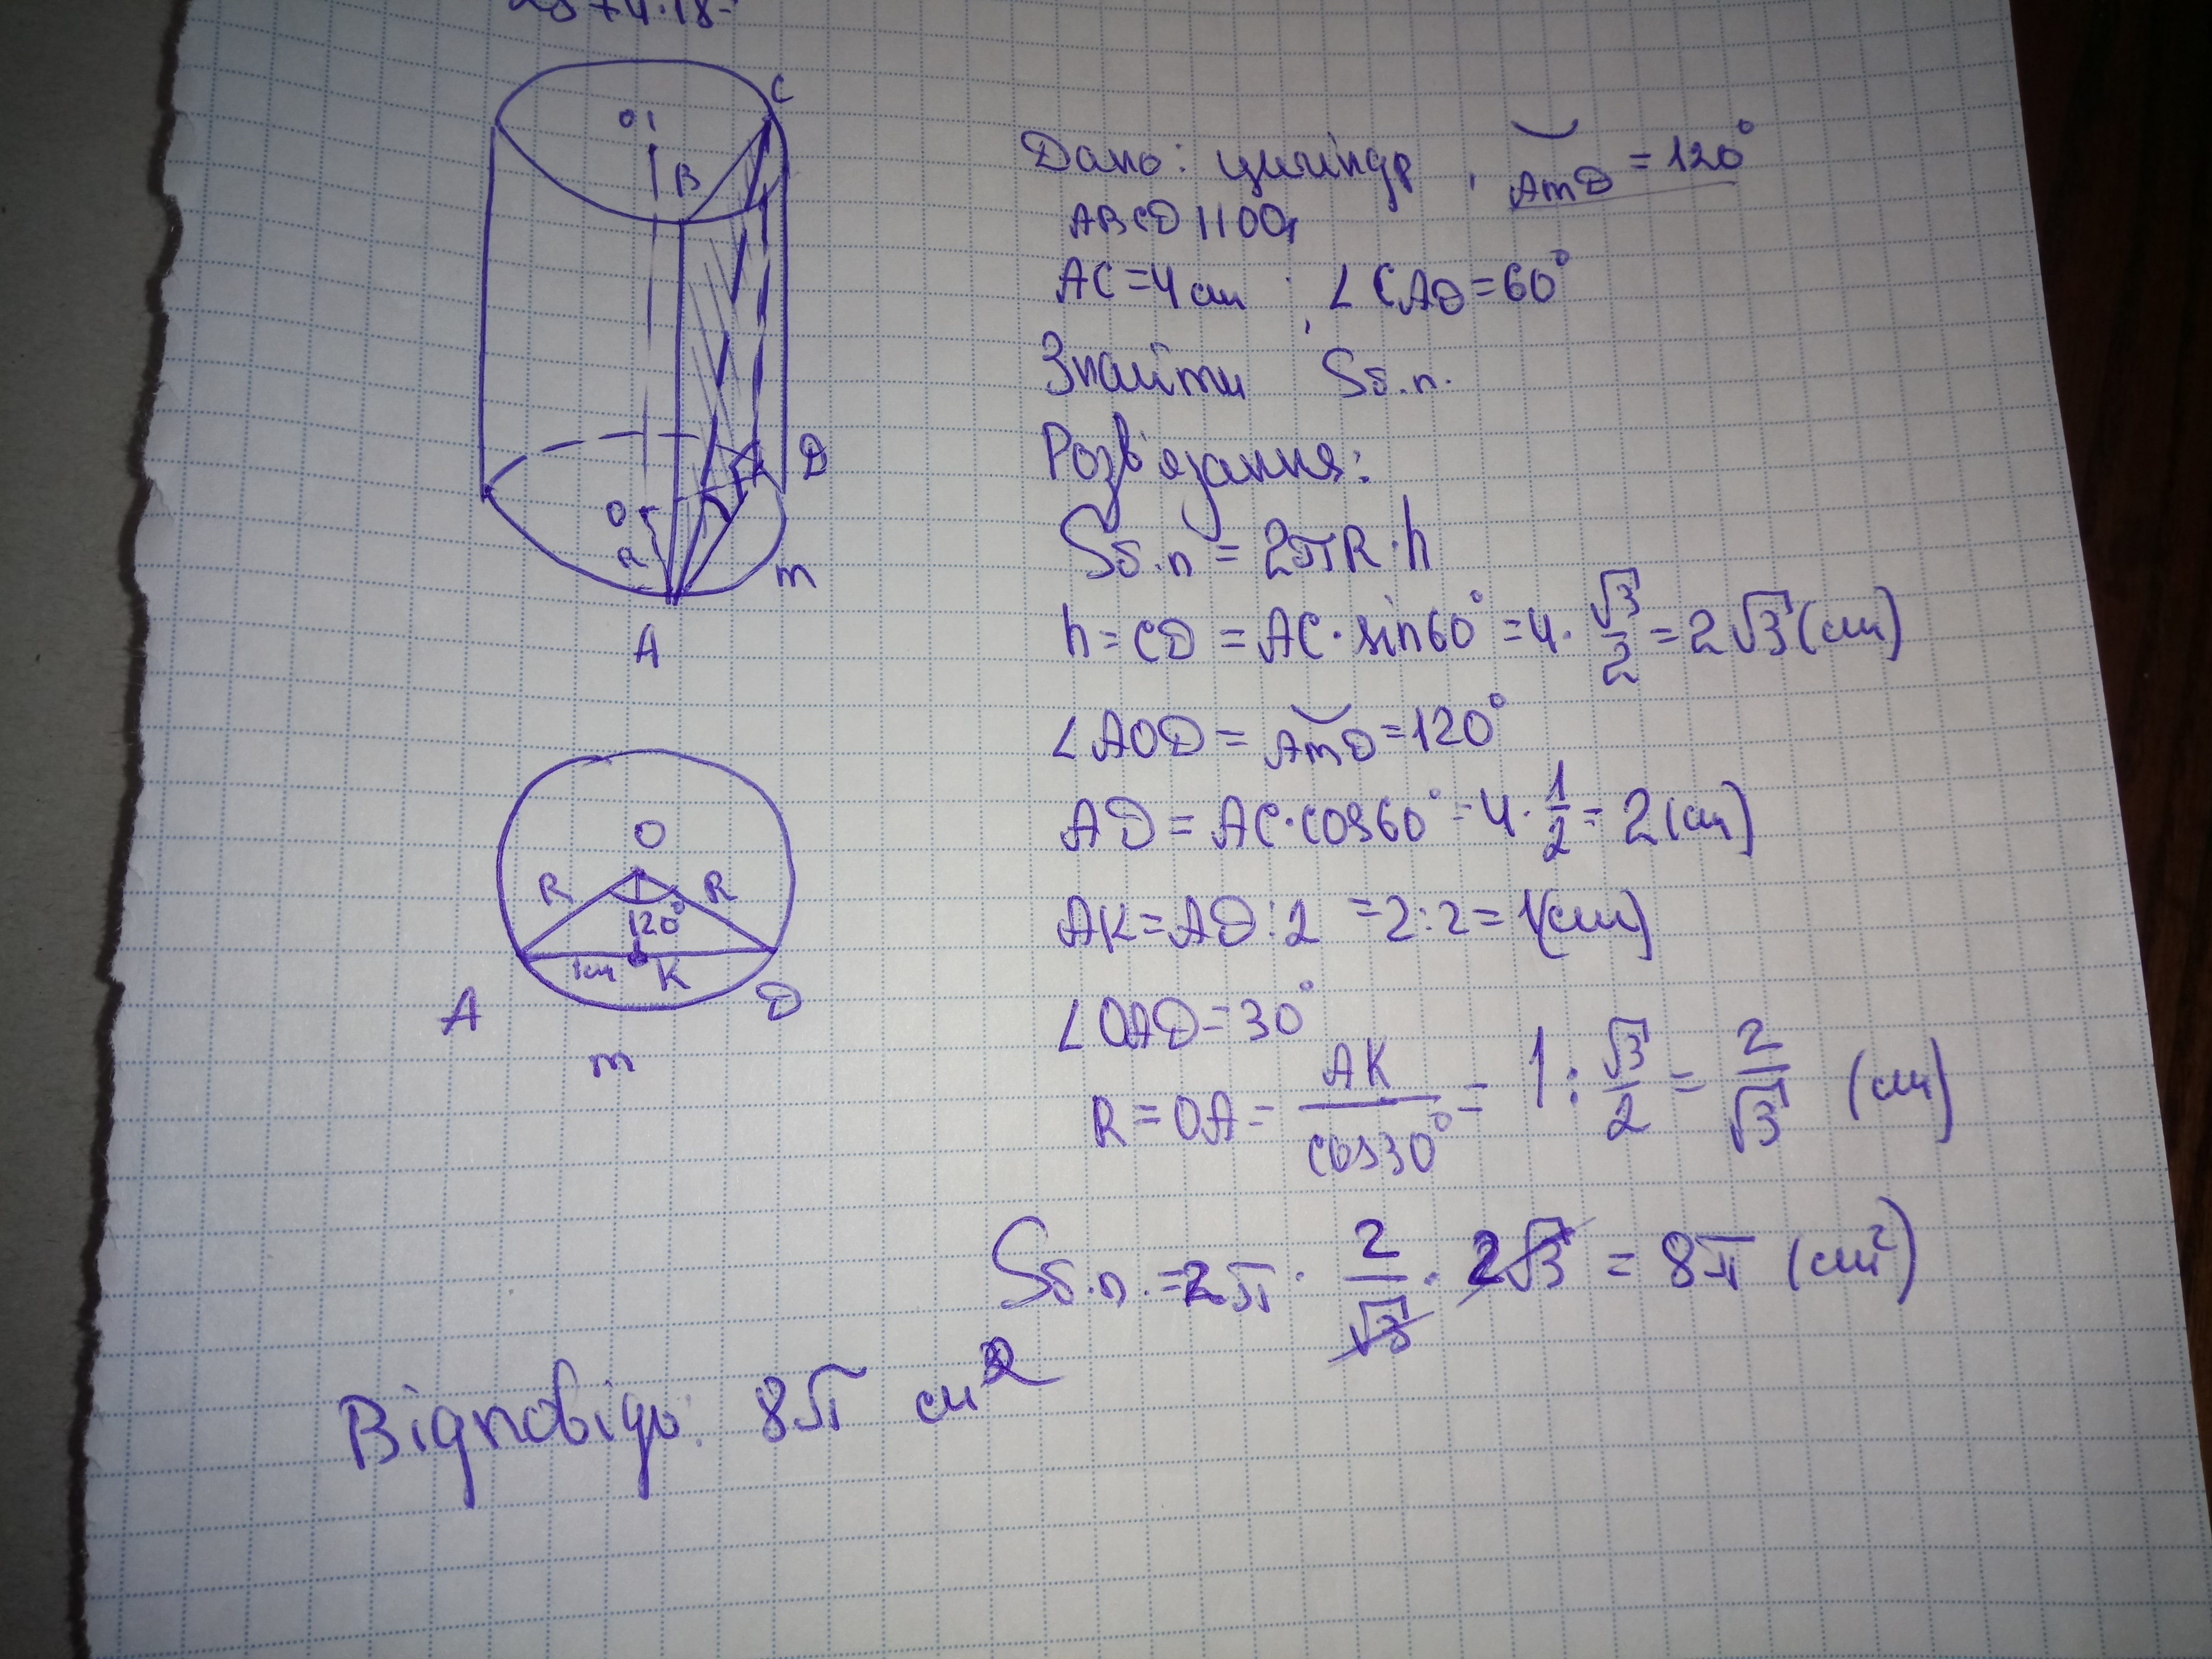 28+4·18=
C
O₁
B
D
O
R
m
A
Дано: циліндр, ◡AmD = 120°
ABCD || OO₁
AC=4см; ∠CAD=60°
Знайти Sб.п.
Розв'язання:
Sб.п = 2πR·h
h=CD = AC·sin60° = 4·√3/2 = 2√3 (см)
∠AOD = ◡AmD = 120°
AD = AC·cos60° = 4·1/2 = 2 (см)
AK = AD:2 = 2:2 = 1 (см)
∠OAD = 30°
R = OA = AK/cos30° = 1:√3/2 = 2/√3 (см)
O
R R
120°
1см K
A D
m
Sб.п. = 2π·2/√3·2√3 = 8π (см²)
Відповідь: 8π см²